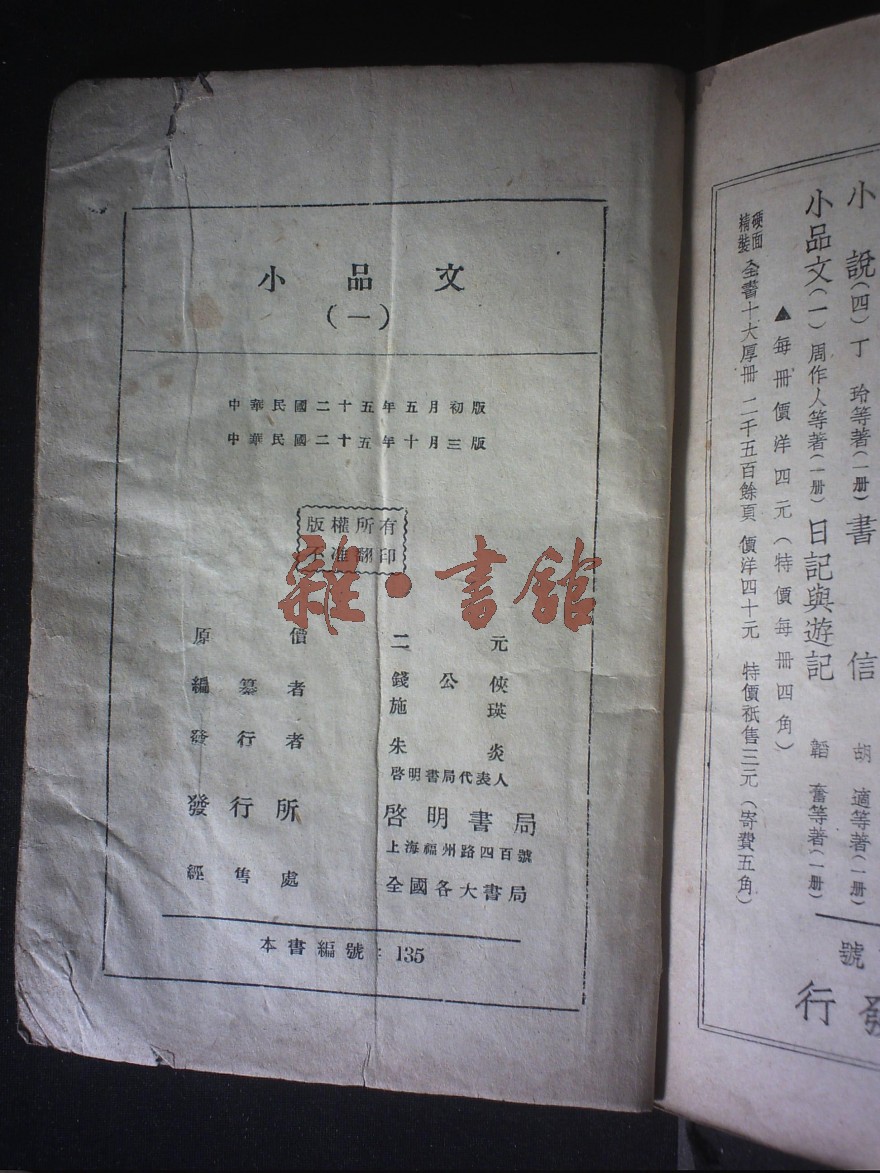 小品文
(一)
中華民國二十五年五月初版
中華民國二十五年十月三版
版權所有
不准翻印
雜·書館
原價 二元
編纂者 錢公俠
施瑛
發行者 朱炎
啓明書局代表人
發行所 啓明書局
上海福州路四百號
經售處 全國各大書局
本書編號：135
小說(四)丁玲等著(一册)書信 胡適等著(一册)
小品文(一)周作人等著(一册)日記與遊記 韜奮等著(一册)
▲每冊價洋四元(特價每冊四角)
硬面精裝 全書十大厚冊 二千五百餘頁 價洋四十元 特價祇售三元(寄費五角)
號
發
行